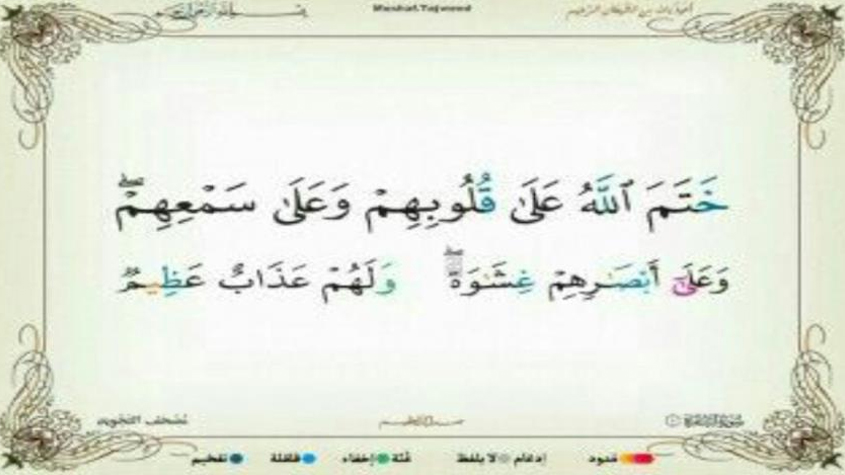 أعوذ بالله من الشيطان الرجيم
Mushaf Tajweed
خَتَمَ ٱللَّهُ عَلَىٰ قُلُوبِهِمْ وَعَلَىٰ سَمْعِهِمْ ۖ
وَعَلَىٰٓ أَبْصَـٰرِهِمْ غِشَـٰوَةٌ ۖ وَلَهُمْ عَذَابٌ عَظِيمٌ
مصحف التجويد
مدود إدغام لا يلفظ غنة إخفاء قلقلة تفخيم